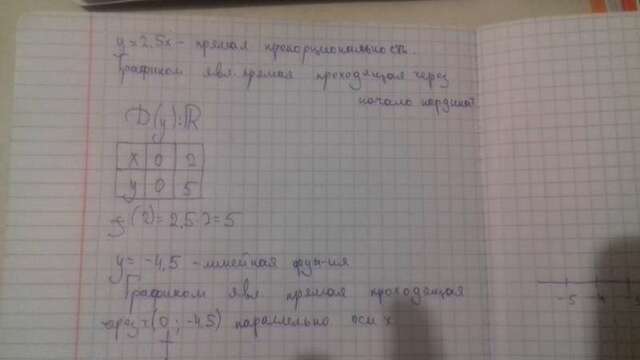 y = 2,5x - прямая пропорциональность.
Графиком явл. прямая проходящая через
начало кординат
D(y):ℝ
x 0 2
y 0 5
y(2) = 2,5·2 = 5
y = -4,5 - линейная фун-ия
Графиком явл. прямая проходящая
через (0 ; -4,5) параллельно оси x
-5 -4